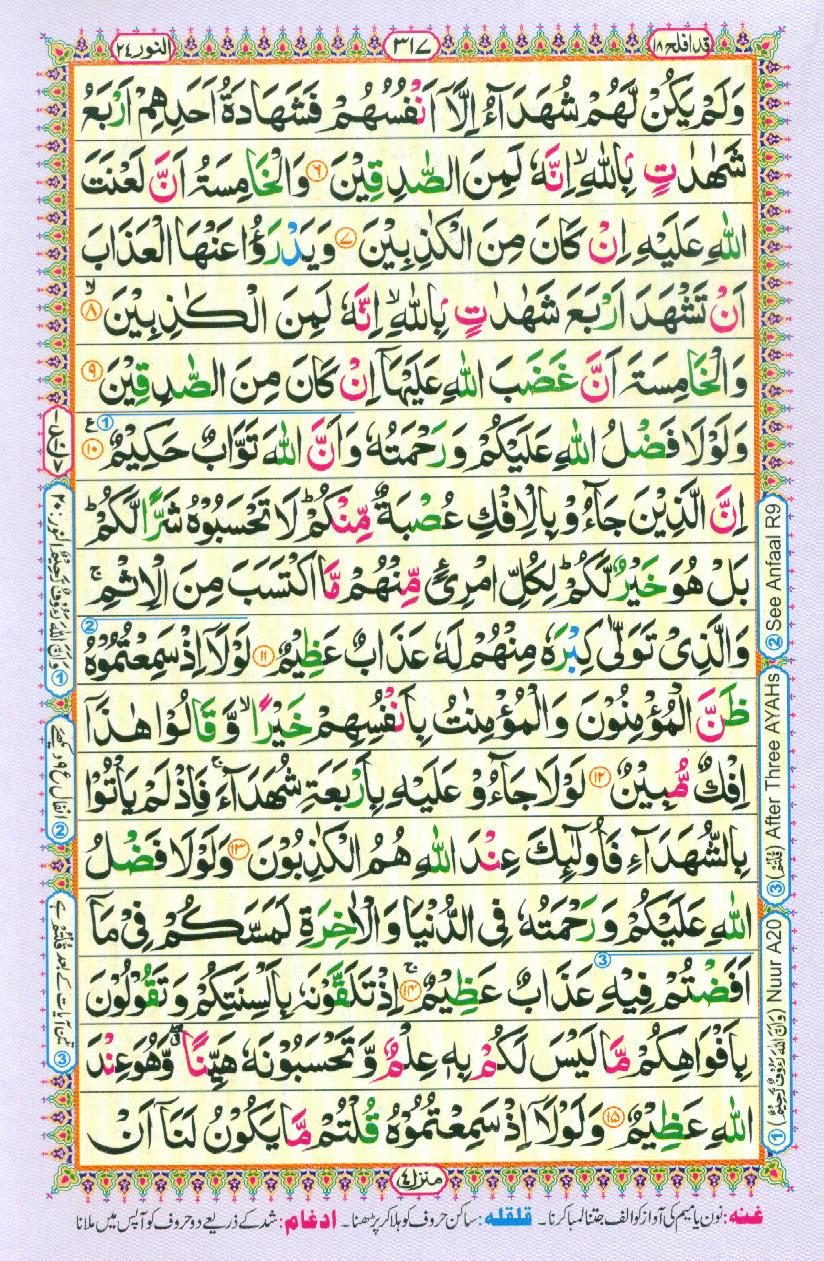 قد افلح ١٨
٣١٧
النور ٢٤
وَلَمْ يَكُنْ لَّهُمْ شُهَدَآءُ اِلَّاۤ اَنْفُسُهُمْ فَشَهَادَةُ اَحَدِهِمْ اَرْبَعُ
شَهٰدٰتٍ بِاللّٰهِ ۙ اِنَّهٗ لَمِنَ الصّٰدِقِيْنَ ۝٦ وَالْخَامِسَةُ اَنَّ لَعْنَتَ
اللّٰهِ عَلَيْهِ اِنْ كَانَ مِنَ الْكٰذِبِيْنَ ۝٧ وَيَدْرَؤُا عَنْهَا الْعَذَابَ
اَنْ تَشْهَدَ اَرْبَعَ شَهٰدٰتٍ بِاللّٰهِ ۙ اِنَّهٗ لَمِنَ الْكٰذِبِيْنَ ۙ ۝٨
وَالْخَامِسَةَ اَنَّ غَضَبَ اللّٰهِ عَلَيْهَاۤ اِنْ كَانَ مِنَ الصّٰدِقِيْنَ ۝٩
وَلَوْلَا فَضْلُ اللّٰهِ عَلَيْكُمْ وَرَحْمَتُهٗ وَاَنَّ اللّٰهَ تَوَّابٌ حَكِيْمٌ ۝١٠ ع ①
اِنَّ الَّذِيْنَ جَآءُوْ بِالْاِفْكِ عُصْبَةٌ مِّنْكُمْ ؕ لَا تَحْسَبُوْهُ شَرًّا لَّكُمْ ؕ
بَلْ هُوَ خَيْرٌ لَّكُمْ ؕ لِكُلِّ امْرِئٍ مِّنْهُمْ مَّا اكْتَسَبَ مِنَ الْاِثْمِ ۚ
وَالَّذِيْ تَوَلّٰى كِبْرَهٗ مِنْهُمْ لَهٗ عَذَابٌ عَظِيْمٌ ۝١١ لَوْلَاۤ اِذْ سَمِعْتُمُوْهُ ②
ظَنَّ الْمُؤْمِنُوْنَ وَالْمُؤْمِنٰتُ بِاَنْفُسِهِمْ خَيْرًا ۙ وَّقَالُوْا هٰذَاۤ
اِفْكٌ مُّبِيْنٌ ۝١٢ لَوْلَا جَآءُوْ عَلَيْهِ بِاَرْبَعَةِ شُهَدَآءَ ۚ فَاِذْ لَمْ يَاْتُوْا
بِالشُّهَدَآءِ فَاُولٰٓئِكَ عِنْدَ اللّٰهِ هُمُ الْكٰذِبُوْنَ ۝١٣ وَلَوْلَا فَضْلُ
اللّٰهِ عَلَيْكُمْ وَرَحْمَتُهٗ فِى الدُّنْيَا وَالْاٰخِرَةِ لَمَسَّكُمْ فِيْ مَاۤ
اَفَضْتُمْ فِيْهِ عَذَابٌ عَظِيْمٌ ۚۖ ۝١٤ ③ اِذْ تَلَقَّوْنَهٗ بِاَلْسِنَتِكُمْ وَتَقُوْلُوْنَ
بِاَفْوَاهِكُمْ مَّا لَيْسَ لَكُمْ بِهٖ عِلْمٌ وَّتَحْسَبُوْنَهٗ هَيِّنًا ۖ وَّهُوَ عِنْدَ
اللّٰهِ عَظِيْمٌ ۝١٥ وَلَوْلَاۤ اِذْ سَمِعْتُمُوْهُ قُلْتُمْ مَّا يَكُوْنُ لَنَاۤ اَنْ
② See Anfaal R9
③ (قُلْتُمْ) After Three AYAHs
① (وَاَنَّ اللّٰهَ رَءُوْفٌ رَّحِيْمٌ) Nuur A20
① وَاَنَّ اللّٰهَ رَءُوْفٌ رَّحِيْمٌ النور ٢٠
② انفال ع ٩ دیکھئے
③ تین آیات کے بعد قُلْتُمْ ہے
منزل ٤
غنه: نون یا میم کی آواز کو الف جتنا لمبا کرنا۔ قلقله: ساکن حروف کو ہلا کر پڑھنا۔ ادغام: شد کے ذریعے دو حروف کو آپس میں ملانا